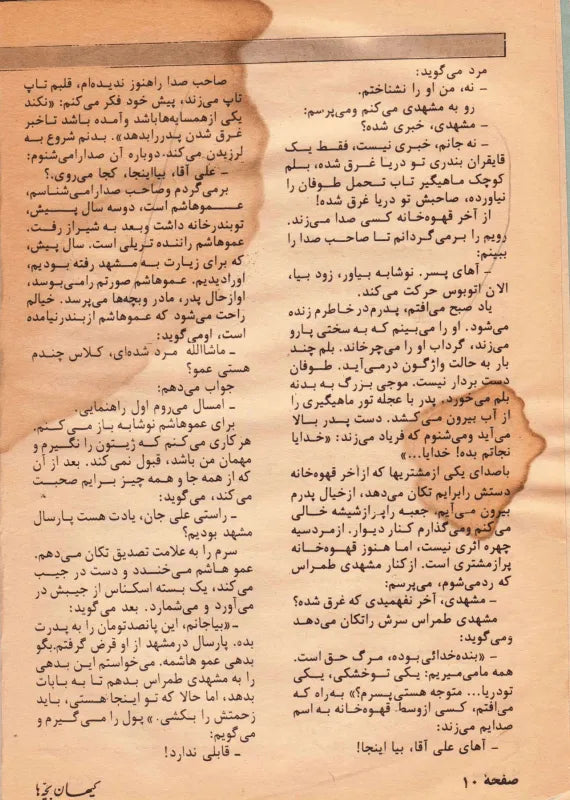 مرد می‌گوید:
ـ نه، من او را نشناختم.
رو به مشهدی می‌کنم ومی‌پرسم:
ـ مشهدی، خبری شده؟
ـ نه جانم، خبری نیست، فقط یک
قایقران بندری تو دریا غرق شده، بلم
کوچک ماهیگیر تاب تحمل طوفان را
نیاورده، صاحبش تو دریا غرق شده!
از آخر قهوه‌خانه کسی صدا می‌زند.
رویم را برمی‌گردانم تا صاحب صدا را
ببینم:
ـ آهای پسر. نوشابه بیاور، زود بیا،
الان اتوبوس حرکت می‌کند.
یاد صبح می‌افتم، پدرم در خاطرم زنده
می‌شود. او را می‌بینم که به سختی پارو
می‌زند، گرداب او را می‌چرخاند. بلم چند
بار به حالت واژگون درمی‌آید. طوفان
دست بردار نیست. موجی بزرگ به بدنه
بلم می‌خورد. پدر با عجله تور ماهیگیری را
از آب بیرون می‌کشد. دست پدر بالا
می‌آید ومی‌شنوم که فریاد می‌زند: «خدایا
نجاتم بده! خدایا...»
باصدای یکی ازمشتریها که ازآخر قهوه‌خانه
دستش رابرایم تکان می‌دهد، ازخیال پدرم
بیرون می‌آیم. جعبه راپرازشیشه خالی
می‌کنم ومی‌گذارم کنار دیوار. ازمردسیه
چهره اثری نیست، اما هنوز قهوه‌خانه
پرازمشتری است. ازکنار مشهدی طمراس
که ردمی‌شوم، می‌پرسم:
ـ مشهدی، آخر نفهمیدی که غرق شده؟
مشهدی طمراس سرش راتکان می‌دهد
ومی‌گوید:
ـ «بنده‌خدائی‌بوده، مرگ حق است.
همه مامی‌میریم: یکی توخشکی، یکی
تودریا... متوجه هستی‌پسرم؟» به‌راه که
می‌افتم، کسی ازوسط قهوه‌خانه به اسم
صدایم می‌زند:
ـ آهای علی آقا، بیا اینجا!
صاحب صدا راهنوز ندیده‌ام، قلبم تاپ
تاپ می‌زند، پیش خود فکر می‌کنم: «نکند
یکی ازهمسایه‌هاباشد وآمده باشد تاخبر
غرق شدن پدررابدهد». بدنم شروع به
لرزیدن می‌کند. دوباره آن صدارامی‌شنوم:
ـ علی آقا، بیااینجا، کجا می‌روی.؟
برمی‌گردم وصاحب صدارامی‌شناسم،
عموهاشم است، دوسه سال پیش،
توبندرخانه داشت وبعد به شیراز رفت.
عموهاشم راننده تریلی است. سال پیش،
که برای زیارت به مشهد رفته بودیم،
اورادیدیم. عموهاشم صورتم رامی‌بوسد،
اوازحال پدر، مادر وبچه‌ها می‌پرسد. خیالم
راحت می‌شود که عموهاشم ازبندرنیامده
است، اومی‌گوید:
ـ ماشاالله مرد شده‌ای، کلاس چندم
هستی عمو؟
جواب می‌دهم:
ـ امسال می‌روم اول راهنمایی.
برای عموهاشم نوشابه باز می‌کنم.
هرکاری می‌کنم که ژیتون را نگیرم و
مهمان من باشد، قبول نمی‌کند. بعد از آن
که از همه جا و همه چیز برایم صحبت
می‌کند، می‌گوید:
ـ راستی علی جان، یادت هست پارسال
مشهد بودیم؟
سرم را به علامت تصدیق تکان می‌دهم.
عمو هاشم می‌خندد و دست در جیب
می‌کند، یک بسته اسکناس از جیبش در
می‌آورد و می‌شمارد. بعد می‌گوید:
ـ «بیاجانم، این پانصدتومان را به پدرت
بده. پارسال درمشهد از او قرض گرفتم.بگو
بدهی عمو هاشمه. می‌خواستم این بدهی
را به مشهدی طمراس بدهم تا به بابات
بدهد، اما حالا که تو اینجا هستی، باید
زحمتش را بکشی.» پول را می‌گیرم و
می‌گویم:
ـ قابلی ندارد!
صفحهٔ ۱۰
کیهان بچه‌ها